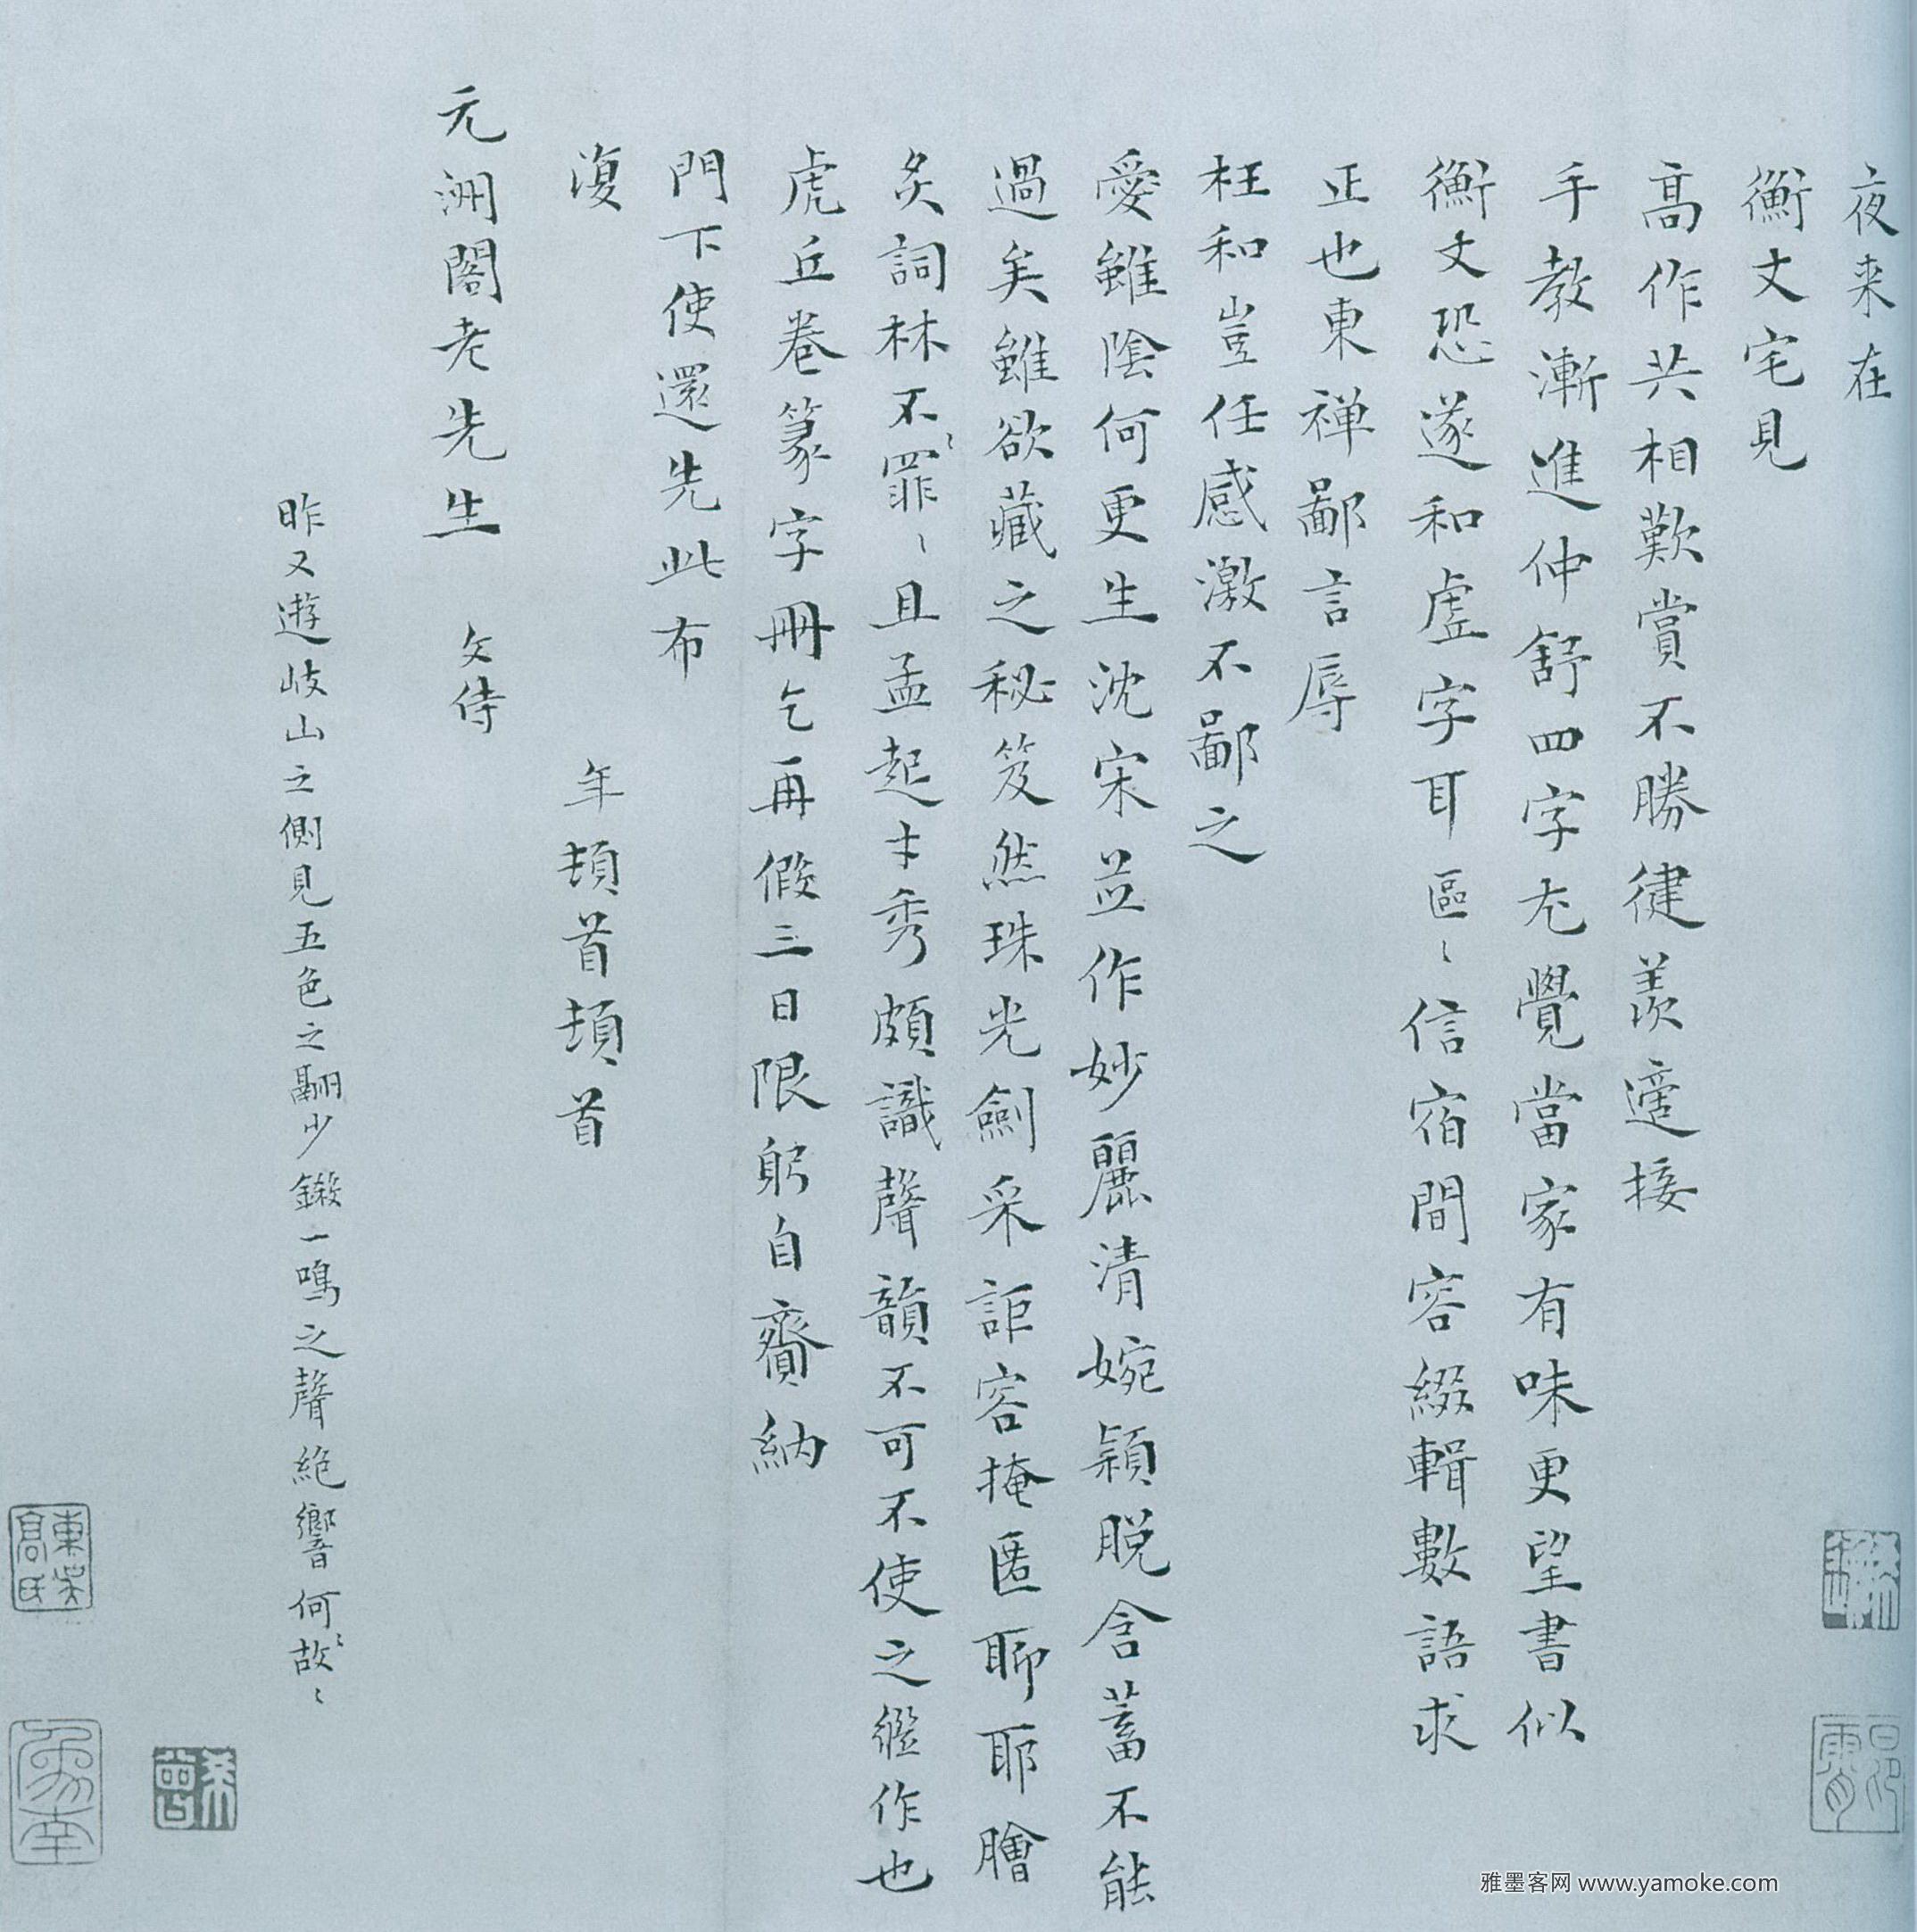 夜来在
衡丈宅見
髙作共相歎賞不勝健羨適接
手教漸進仲舒四字尤覺當家有味更望書似
衡丈恐遂和虗字耳區〻信宿間容綴輯數語求
正也東禅鄙言辱
枉和豈任感激不鄙之
愛雖陰何更生沈宋並作妙麗清婉穎脱含蓄不能
過矣雖欲藏之秘笈然珠光劍采詎容掩匿聊耶膾
炙詞林不〻罪〻且孟起才秀頗識聲韻不可不使之繼作也
虎丘卷篆字冊乞再假三日限躬自齎納
門下使還先此布
復
年頓首頓首
元洲閣老先生 文侍
昨又遊岐山之側見五色之翮少鎩一鳴之聲絶響何〻故〻
東吳
髙氏
雅墨客网 www.yamoke.com